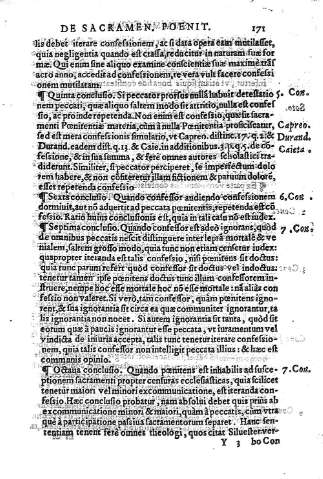 DE SACRAMEN. POENIT. 171
lis debet iterare confessionem, ac si data opera eam mutilasset,
quia negligentia quando est crassa, reducitur in naturam suæ for
mæ. Qui enim sine aliquo examine conscientiæ suæ maxime trãs
acto anno, accedit ad confessionem, te vera vult facere confessi
onem mutilatam.
¶ Quinta conclusio. Si peccator prorsus nulla habuit detestatio 5. Con.
nem peccati, quæ aliquo saltem modo sit attritio, nulla est confes
sio, ac proinde repetenda. Non enim est confessio, quæ sit sacra-
menti Pœnitentiæ materia, cum à nulla Pœnitentia proficiscatur, Capreo.
sed est mera confessionis simulatio, vt Capreo. distinc. 17. q. 2. & Durand.
Durand. eadem dist. q. 13. & Caie. in additionibus. q. 5. de cõ- Caieta.
fessione, & in sua summa, & fere omnes autores scholastici tra-
diderunt. Similiter, si peccator perciperet, se imperfectum dolo
rem habere, & non conteretur illam fictionem & paruum dolorē,
esset repetenda confessio
¶ Sexta conclusio. Quando confessor audiendo confessionem 6. Con.
dormiuit, aut nõ aduertit ad peccata pœnitentis, repetenda est cõ
fessio. Ratio huius conclusionis est, quia in tali casu nõ est iudex.
¶ Septima conclusio. Quando confessor est adeò ignorans, quòd 7. Con.
de omnibus peccatis nescit distinguere inter leprã mortalẽ & ve
nialem, saltem grosso modo, quia tunc non etiam censetur iudex:
quapropter iteranda est talis confessio, nisi pœnitens sit doctus:
quia tunc parum refert quòd confessor sit doctus vel indoctus:
tenetur tamen ipse pœnitens doctus tunc illum confessorem in-
struere, nempe hoc esse mortale hoc nõ esse mortale: nã aliàs con
fessio non valeret. Si verò, tam confessor, quàm pœnitens igno-
rent, & sua ignorantia sit circa ea quæ communiter ignorantur, ta
lis ignorantia non nocet. Si autem ignorantia sit tanta, quòd sit
eorum quæ à paucis ignorantur esse peccata, vt iuramentum vel
vindicta de iniuria accepta, talis tunc tenetur iterare confessio-
nem, quia talis confessor non intelligit peccata illius: & hæc est
communis opinio.
¶ Octaua conclusio. Quando pœnitens est inhabilis ad susce- 7. Con.
ptionem sacramenti propter censuras ecclesiasticas, quia scilicet
tenetur maiori vel minori excommunicatione, est iteranda con-
fessio. Hæc conclusio probatur, nam absolui debet quis prius ab
excommunicatione minori & maiori, quàm à peccatis, cum vtra
que à participatione passiua sacramentorum separet. Hanc sen-
tentiam tenent fere omnes theologi, quos citat Siluester ver-
Y 3 bo Con